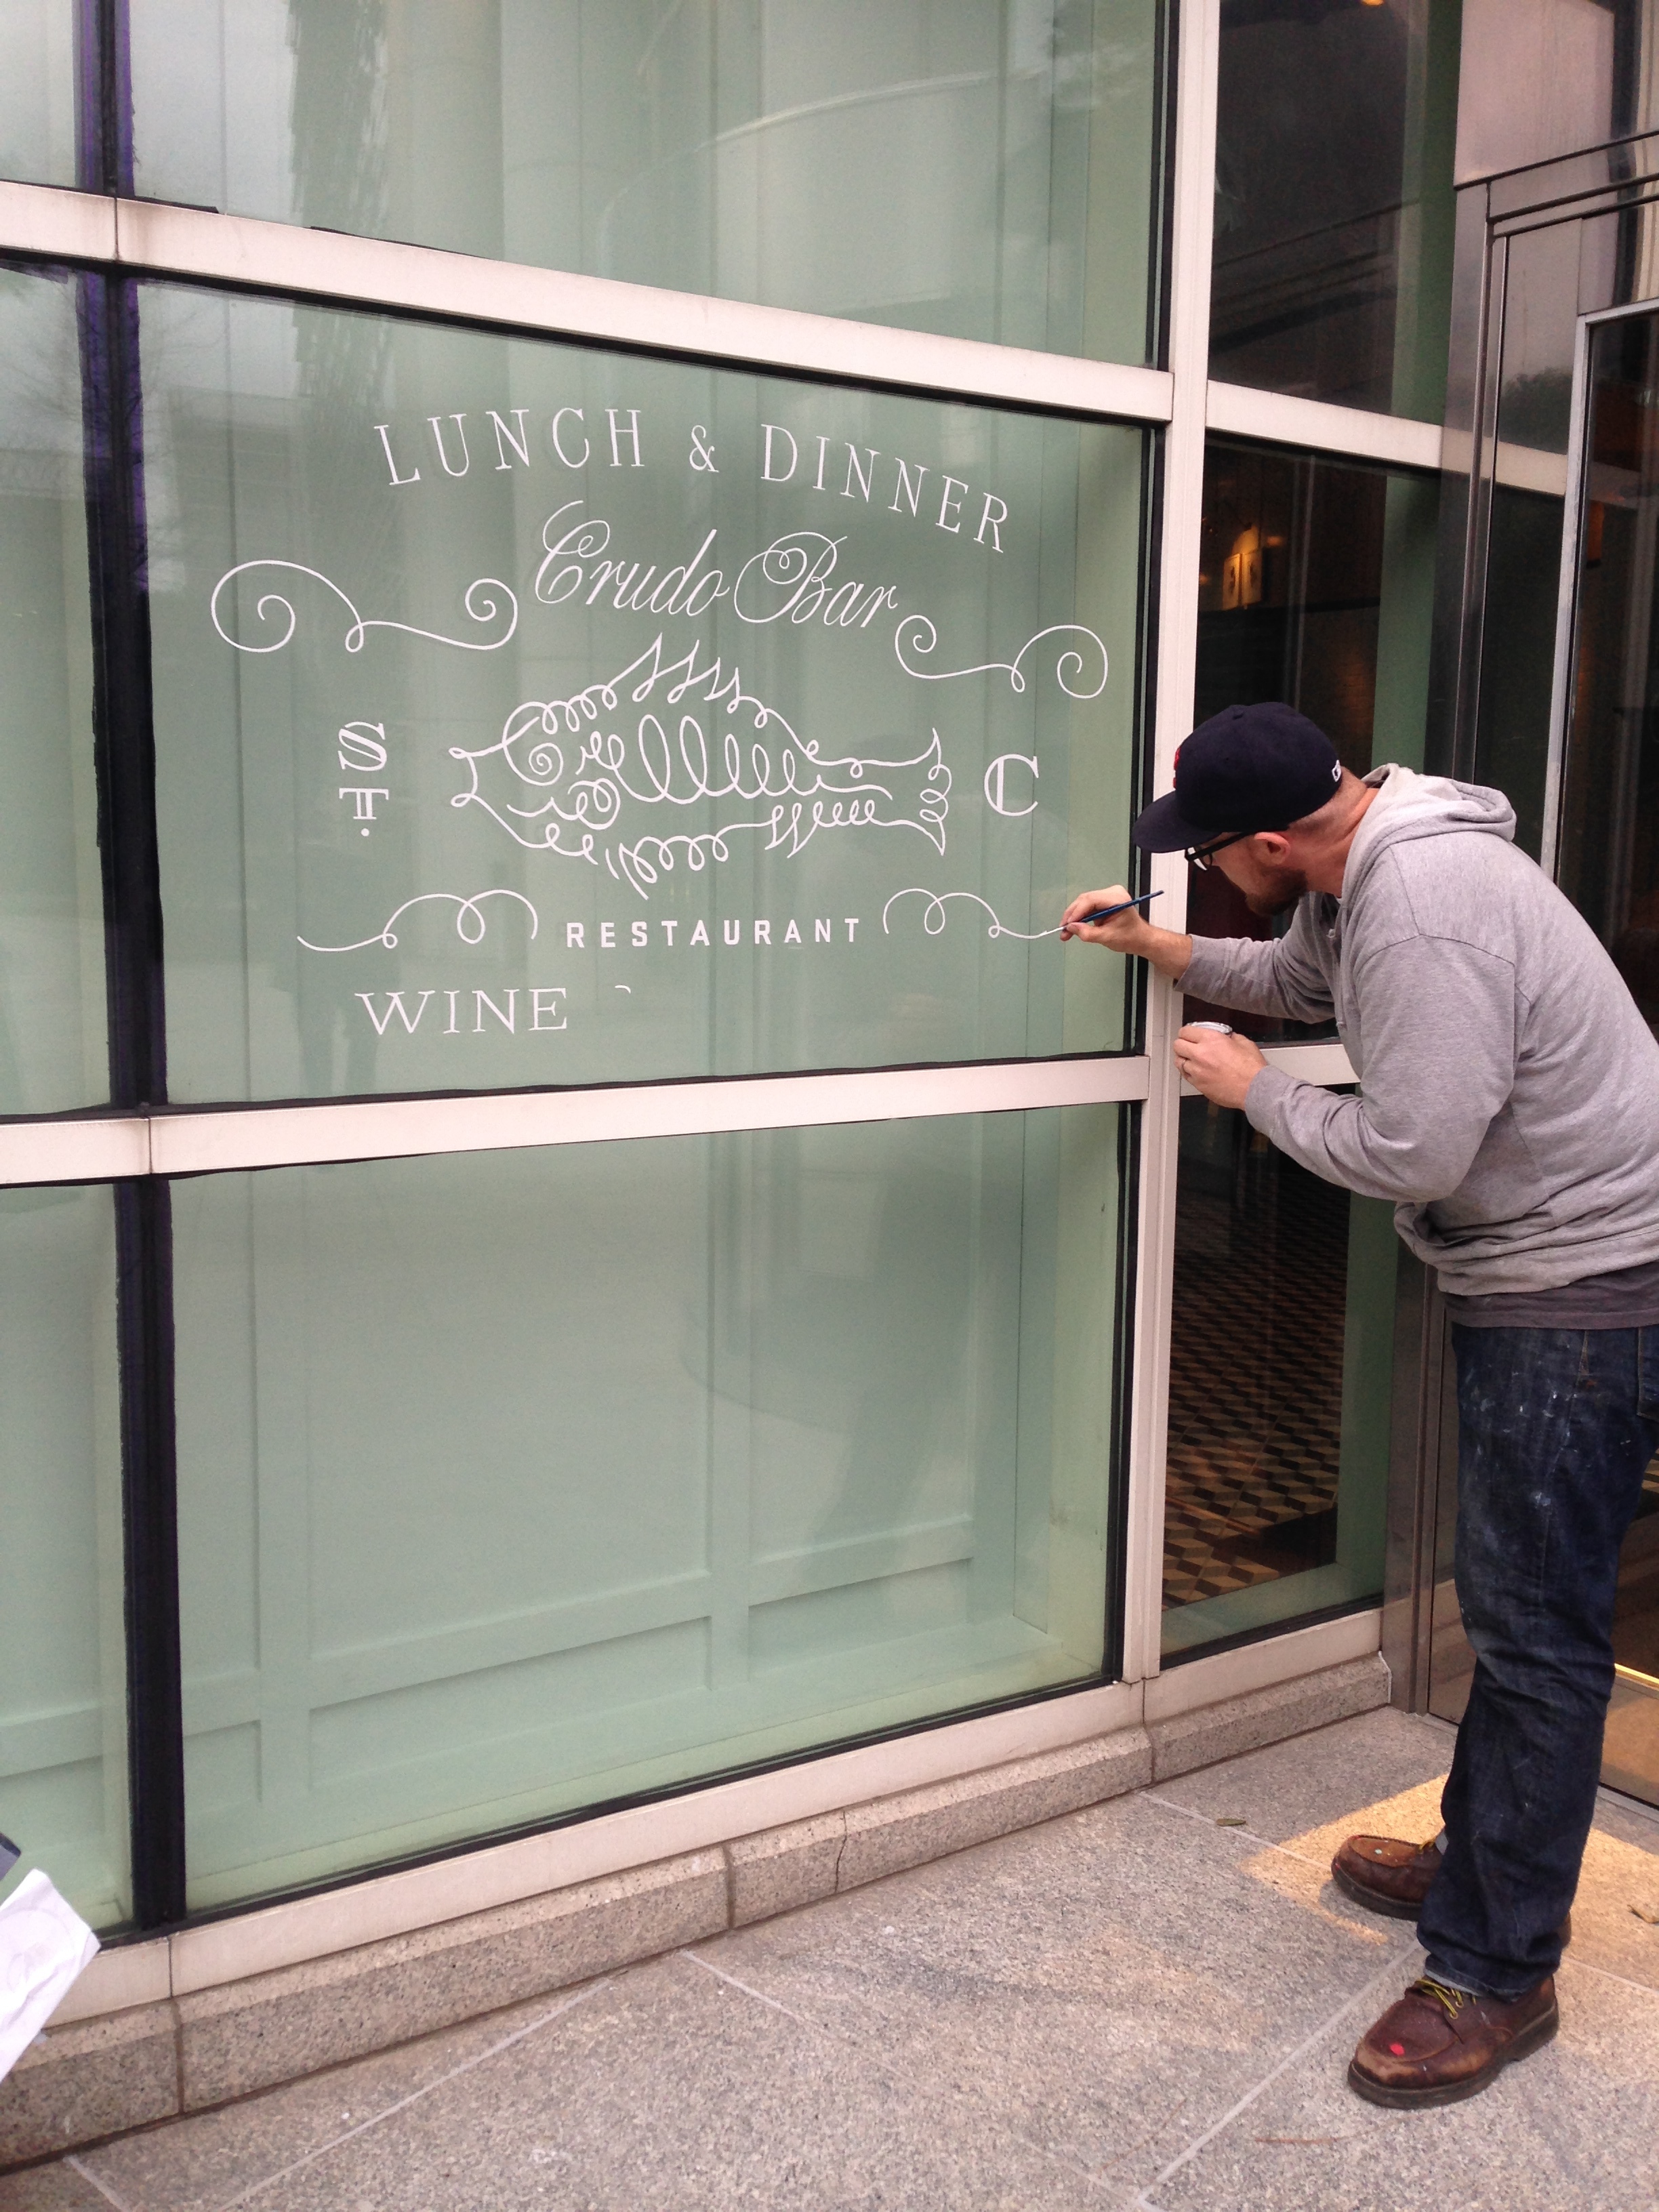 LUNCH & DINNER
Crudo Bar
ST. C
RESTAURANT
WINE